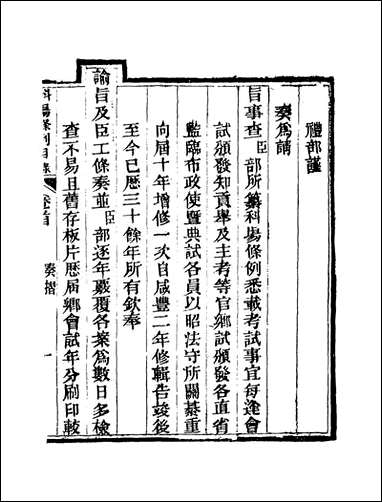 禮部謹
奏爲請
旨事查臣部所纂科場條例悉載考試事宜每逢會
試頒發知貢舉及主考等官鄉試頒發各直省
監臨布政使暨典試各員以昭法守所關綦重
向屆十年增修一次自咸豐二年修輯告竣後
至今已歷三十餘年所有欽奉
諭旨及臣工條奏並臣部逐年覈覆各案爲數日多檢
查不易且舊存板片歷屆鄉會試年分刷印較
科場條例目錄 卷首 奏摺 一